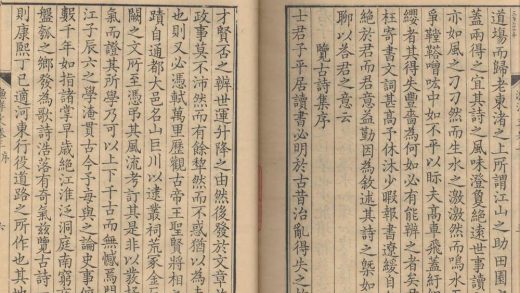 道塲而歸老東渚之上所謂江山之助田園之
蓋兩得之宜其詩之風味澄敻絕遠世事讀
亦如風之刁刁然而生水之激激然而鳴水
爭鞺鞳噌吰中如不平以眎夫高車飛蓋紆
纓者其得失豐嗇為何如必有能辨之者矣君
枉寄書文詞甚高子休沐少暇報書遼緩自
絕於君而君意益勤因為敘述其詩之槩如
聊以荅君之意云
覽古詩集序
士君子平居讀書必明於古昔治亂得失之
才賢否之辨世運升降之由然後發於文章
政事莫不沛然而有餘犂然而不惑猶以為
也則又必憑軾萬里歷觀古帝王聖賢將相
蹟自通都大邑名山巨川以逮叢祠荒冢金
闕之文所至憑弔其風流考訂其是非以
氣而證其所學乃可以上下千古而無憾焉
江子辰六之學淹貫古今予每與之論史事
數千年如指諸掌早歲絕江淮泛洞庭南窮
盤瓠之鄉發為歌詩浩落有奇氣玆覽古詩
則康熙丁巳適河東行役道路之所作也其
序
六